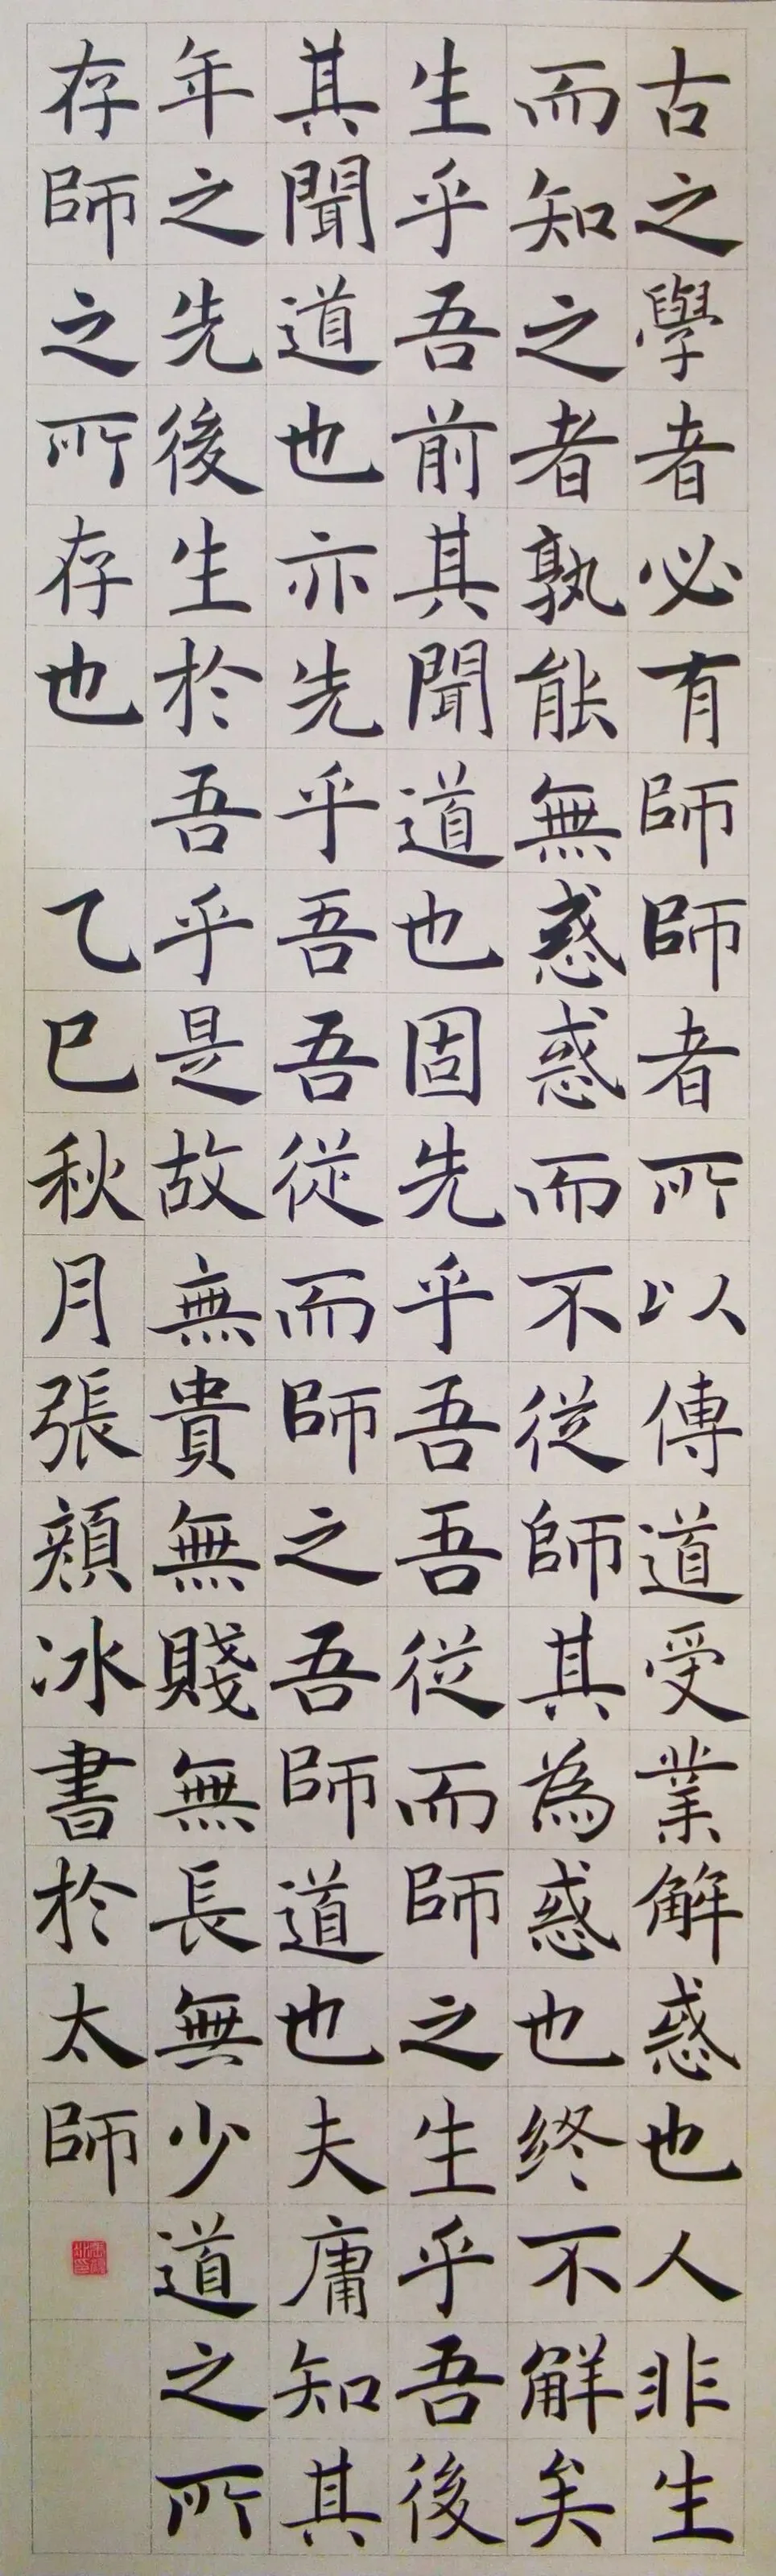 古之學者必有師師者所以傳道受業解惑也人非生
而知之者孰能無惑惑而不從師其為惑也終不解矣
生乎吾前其聞道也固先乎吾吾從而師之生乎吾後
其聞道也亦先乎吾吾從而師之吾師道也夫庸知其
年之先後生於吾乎是故無貴無賤無長無少道之所
存師之所存也 乙巳秋月張冰書於太師